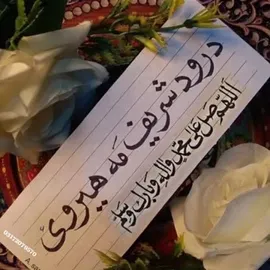 درود شريف مه هيروئ
اللهم صل على محمد واله وبارك وسلم